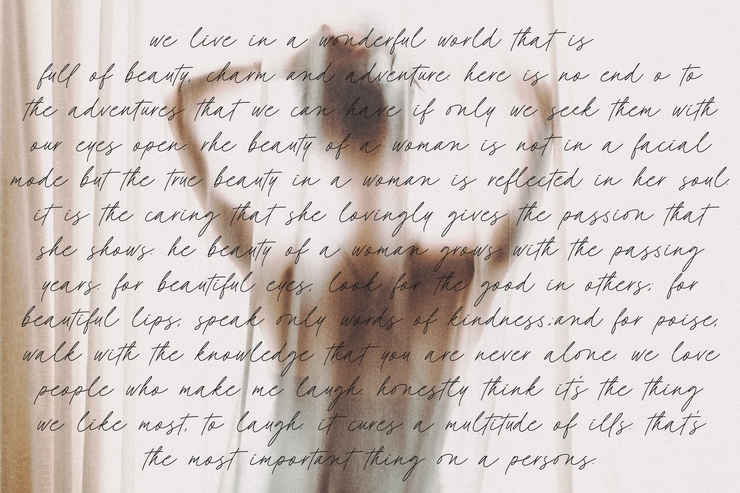 we live in a wonderful world that is
full of beauty, charm and adventure. here is no end o to
the adventures that we can have if only we seek them with
our eyes open. rhe beauty of a woman is not in a facial
mode but the true beauty in a woman is reflected in her soul.
it is the caring that she lovingly gives the passion that
she shows. he beauty of a woman grows with the passing
years. for beautiful eyes, look for the good in others; for
beautiful lips, speak only words of kindness;and for poise,
walk with the knowledge that you are never alone. we love
people who make me laugh. honestly think it's the thing
we like most, to laugh. it cures a multitude of ills. that's
the most important thing on a persons.